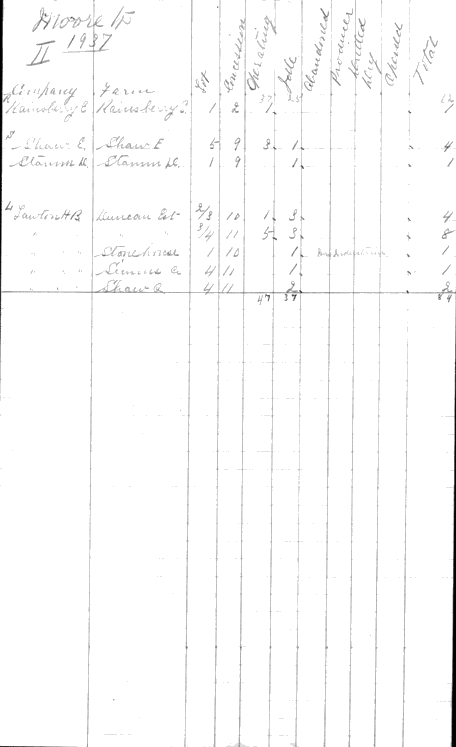 Moore Tp
II 1937
Company Farm Lot Concession Operating Idle Abandoned Producer Drilled Dry Opened Total
37 25 62
R Rainsberry C. Rainsberry C. 1 20 1 1
S Shaw E. Shaw E 5 9 3 1 4
Stamm D. Stamm D. 1 9 1 1
L Lawton H B Duncan Est 2/3 10 1 3 4
" " " " " 3/4 11 5 3 8
" " " Stonehouse 1 10 1 1
" " " Simms A 4 11 1 1
" " " Shaw A 4 11 2 2
47 37 84